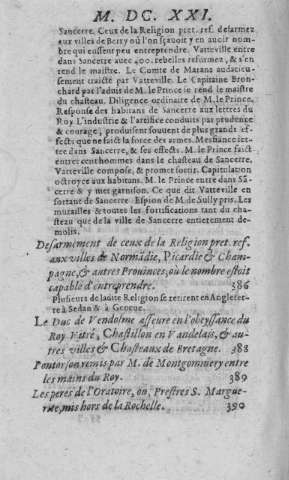 M. DC. XXI.
Sancerre. Ceux de la Religion pret. ref. desarmez
aux villes de Berry où l'on sçauoit y en auoir nom-
bre qui eussent peu entreprendre. Vatteville entre
dans Sancerre auec 400. rebelles reformez, & s'en
rend le maistre. Le Comte de Marans audacieu-
sement traicté par Vatteville. Le Capitaine Bron-
chard par l'aduis de M. le Prince se rend le maistre
du chasteau. Diligence ordinaire de M. le Prince,
Response des habitans de Sancerre aux lettres du
Roy. L'industrie & l'artifice conduits par prudence
& courage, produisent souuent de plus grands ef-
fects que ne faict la force des armes. Mesfiance jet-
tee dans Sancerre, & ses effects. M. le Prince faict
entrer cent hommes dans le chasteau de Sancerre.
Vatteville compose, & promet sortir. Capitulation
octroyee aux habitans. M. le Prince entre dans Sã-
cerre & y met garnison. Ce que dit Vatteville en
sortant de Sancerre. Espion de M. de Sully pris. Les
murailles & toutes les fortifications tant du cha-
steau que de la ville de Sancerre entierement de-
molis.
Desarmement de ceux de la Religion pret. ref.
aux villes de Normãdie, Picardie & Cham-
pagne, & autres Prouinces, ou le nombre estoit
capable d'entreprendre. 386
Plusieurs de ladite Religion se retirent en Angleter-
re à Sedan & à Geneue.
Le Duc de Vendosme asseure en l'obeyssance du
Roy Vitré, Chastillon en Vandelais, & au-
tres villes & Chasteaux de Bretagne. 388
Pontorson remis par M. de Montgommery entre
les mains du Roy. 389
Les peres de l'Oratoire, ou, Prestres S. Margue-
rite, mis hors de la Rochelle. 390